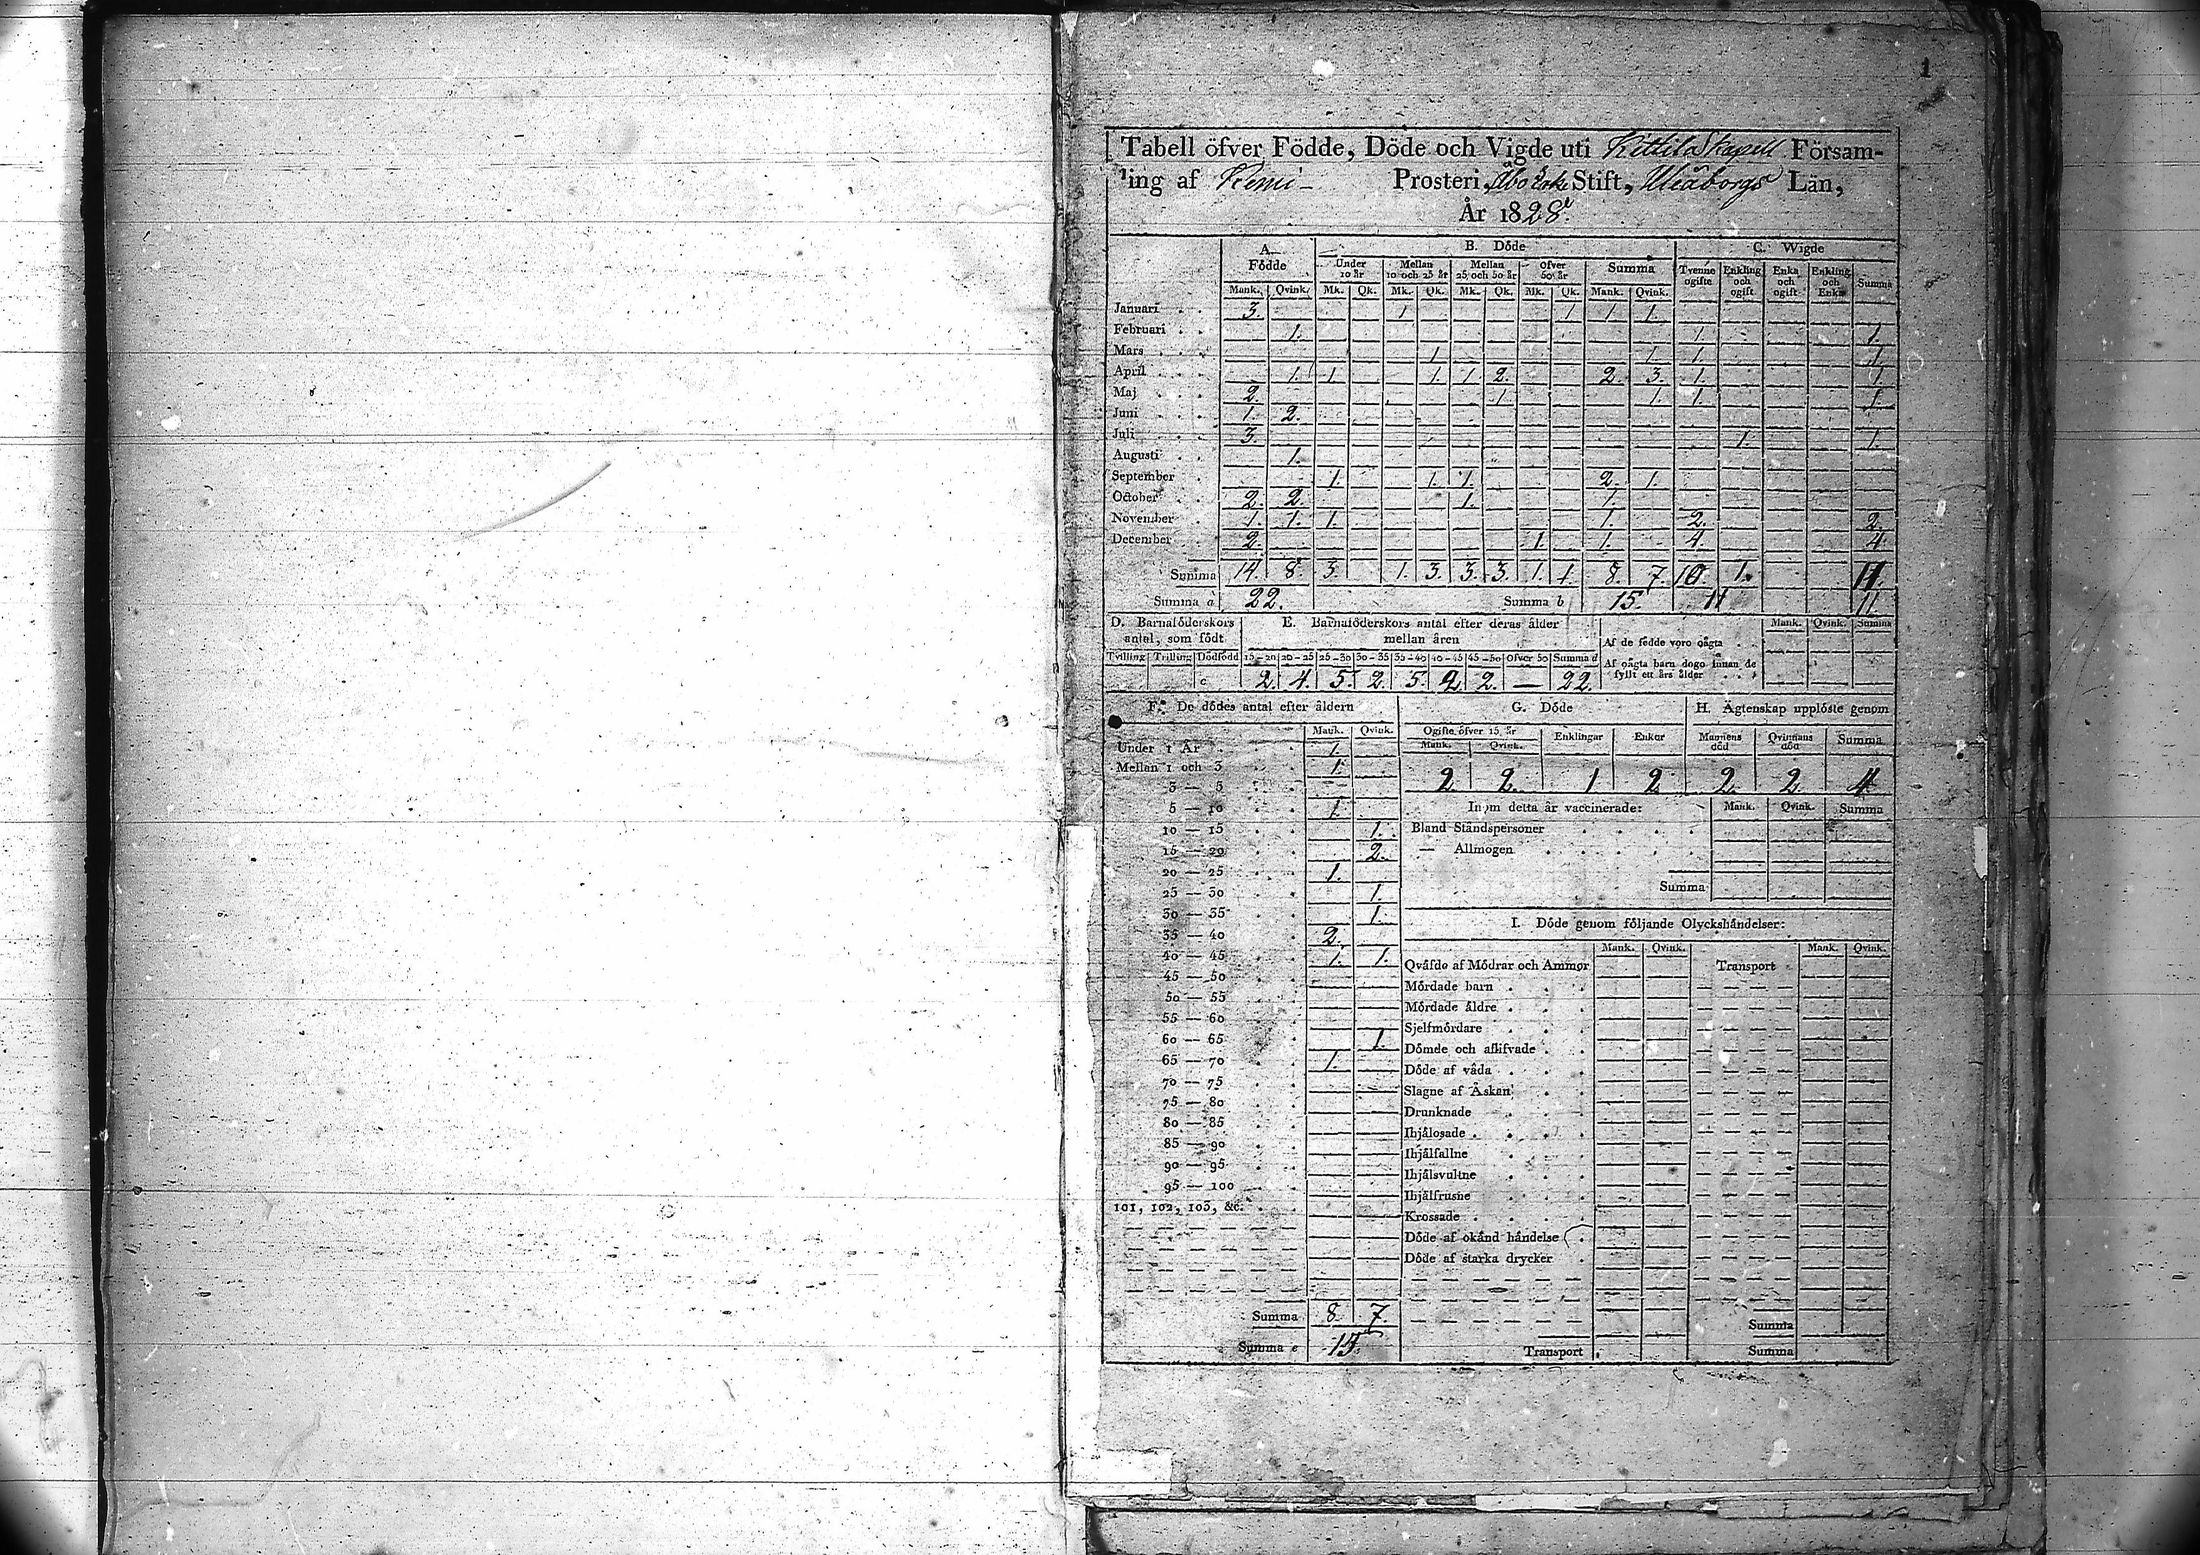 1
Tabell öfver Födde, Döde och Vigde uti Kittilä Kapell Försam-
ling af Kemi Prosteri, Åbo Erke Stift, Uleåborgs Län,
År 1828.
A. B. Döde C. Wigde
Födde Under 10 år Mellan 10 och 25 år Mellan 25 och 50 år Öfver 50 år Summa Tvenne ogifte Enkling och ogift Enka och ogift Enkling och Enka Summa
Mank. Qvink. Mk. Qk. Mk. Qk. Mk. Qk. Mk. Qk. Mank. Qvink.
Januari . . 3. 1 1 1 1
Februari . . 1. 1 1.
Mars . . . 1 1 1 1
April . . . 1. 1. 1. 1 2. 2. 3. 1. 1
Maj . . . 2. 1 1 1 1
Juni . . . 1. 2.
Juli . . . 3. 1. 1.
Augusti . . 1.
September . 1. 1. 1. 2. 1.
October . . 2. 2. 1. 1.
November . 1. 1. 1. 1. 2. 2.
December . . 2. 1. 1. 4. 4
Summa 14. 8. 3. 1. 3. 3. 3. 1. 1. 8. 7. 10 1. 11.
Summa a 22. Summa b 15. 11 11.
D. Barnaföderskors antal, som födt
Tvilling Trilling Dödfödd
c
E. Barnaföderskors antal efter deras ålder
mellan åren
15—20 20—25 25—30 30—35 35—40 40—45 45—50 Öfver 50 Summa d
2. 4. 5. 2. 5. 2 2. — 22.
Mank. Qvink. Summa
Af de födde voro oägta . .
Af oägta barn dogo innan de
fyllt ett års ålder . . .
F. De dödes antal efter åldern
Mank. Qvink.
Under 1 År . . 1.
Mellan 1 och 3 . . 1.
3 — 5 . .
5 — 10 . . 1.
10 — 15 . . 1.
15 — 20 . . 2.
20 — 25 . . 1.
25 — 30 . . 1.
30 — 35 . . 1.
35 — 40 . . 2.
40 — 45 . . 1. 1.
45 — 50 . .
50 — 55 . .
55 — 60 . .
60 — 65 . . 1.
65 — 70 . . 1.
70 — 75 . .
75 — 80 . .
80 — 85 . .
85 — 90 . .
90 — 95 . .
95 — 100 . .
101, 102, 103, &c. . .
Summa 8. 7.
Summa e 15.
G. Döde
Ogifte öfver 15 år Enklingar Enkor
Mank. Qvink.
2 2. 1 2
H. Ägtenskap upplöste genom
Mannens död Qvinnans död Summa
2. 2 4
Inom detta år vaccinerade: Mank. Qvink. Summa
Bland Ståndspersoner . . . .
— Allmogen . . . . .
Summa
I. Döde genom följande Olyckshändelser:
Mank. Qvink. Mank. Qvink.
Qväfde af Mödrar och Ammor Transport
Mördade barn . . .
Mördade äldre . . .
Sjelfmördare . . .
Dömde och aflifvade . .
Döde af våda . . .
Slagne af Åskan . .
Drunknade . .
Ihjälosade . . . .
Ihjälfallne . . .
Ihjälsvultne . . .
Ihjälfrusne . . .
Krossade . . . .
Döde af okänd händelse .
Döde af starka drycker .
Summa
Transport . Summa